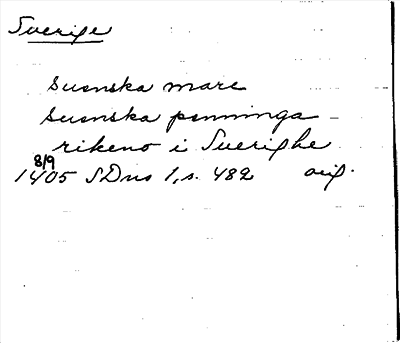 Sverige
suenska mare
suenska penninga
rikeno i Suerighe
8/9
1405 SDns 1, s. 482 orig.